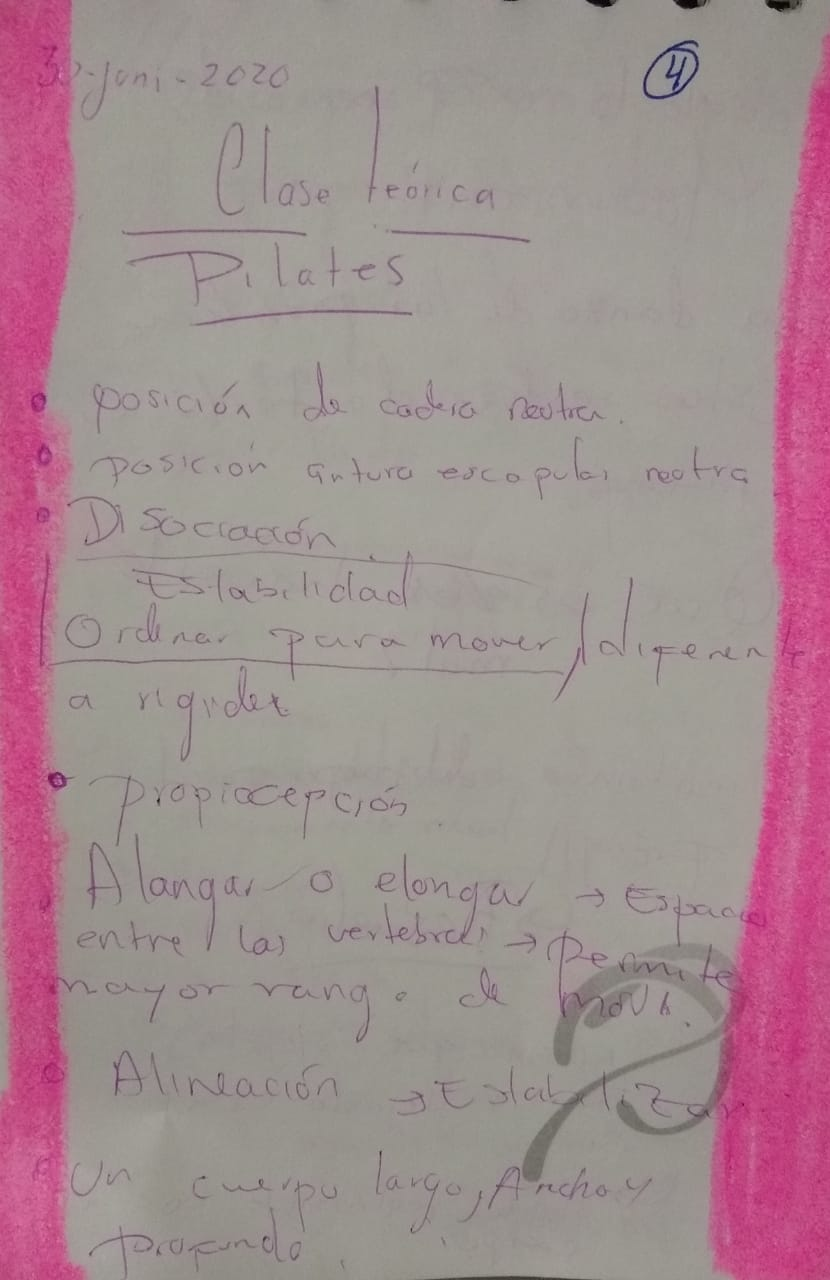 30-juni-2020
4
Clase teórica
Pilates
posición de cadera neutra.
posición cintura escapular neutra
Disociación
Estabilidad
Ordenar para mover, diferente
a rigidez
propiocepción
Alangar o elongar → Espacio
entre las vertebras → Permite
mayor rango de movi.
Alineación → Estabilizar
Un cuerpo largo, Ancho y
profundo.